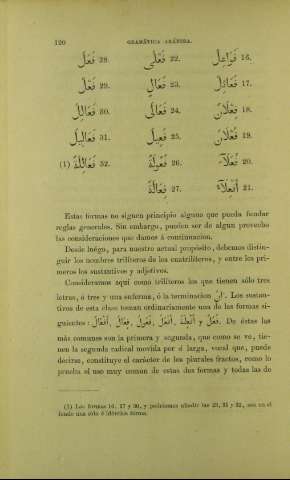 120 GRAMÁTICA ARÁBIGA.
16. فَوَاعِلُ 22. فَعْلَى 28. فُعَّلٌ
17. فَعَائِلُ 23. فِعَالٌ 29. فُعَلٌ
18. فِعْلَانٌ 24. فَعَالَى 30. فَعَالِلُ
19. فُعْلَانٌ 25. فَعِيلٌ 31. فَعَالِيلُ
20. فُعَلَآءُ 26. فُعُولَةٌ 32. فَعَالِلَةٌ (1)
21. أَفْعِلَآءُ 27. فِعَالَةٌ
Estas formas no siguen principio alguno que pueda fundar
reglas generales. Sin embargo, pueden ser de algun provecho
las consideraciones que damos á continuacion.
Desde luégo, para nuestro actual propósito, debemos distin-
guir los nombres trilíteros de los cuatrilíteros, y entre los pri-
meros los sustantivos y adjetivos.
Consideramos aquí como trilíteros los que tienen sólo tres
letras, ó tres y una enferma, ó la terminacion انٌ. Los sustan-
tivos de esta clase toman ordinariamente una de las formas si-
guientes: فِعَالٌ, فُعُولٌ, أَفْعُلٌ, أَفْعِلَةٌ y فُعُلٌ. De éstas las
más comunes son la primera y segunda, que como se ve, tie-
nen la segunda radical movida por á larga, vocal que, puede
decirse, constituye el carácter de los plurales fractos, como lo
prueba el uso muy comun de estas dos formas y todas las de
(1) Las formas 16, 17 y 30, y podríamos añadir las 23, 31 y 32, son en el
fondo una sola é idéntica forma.